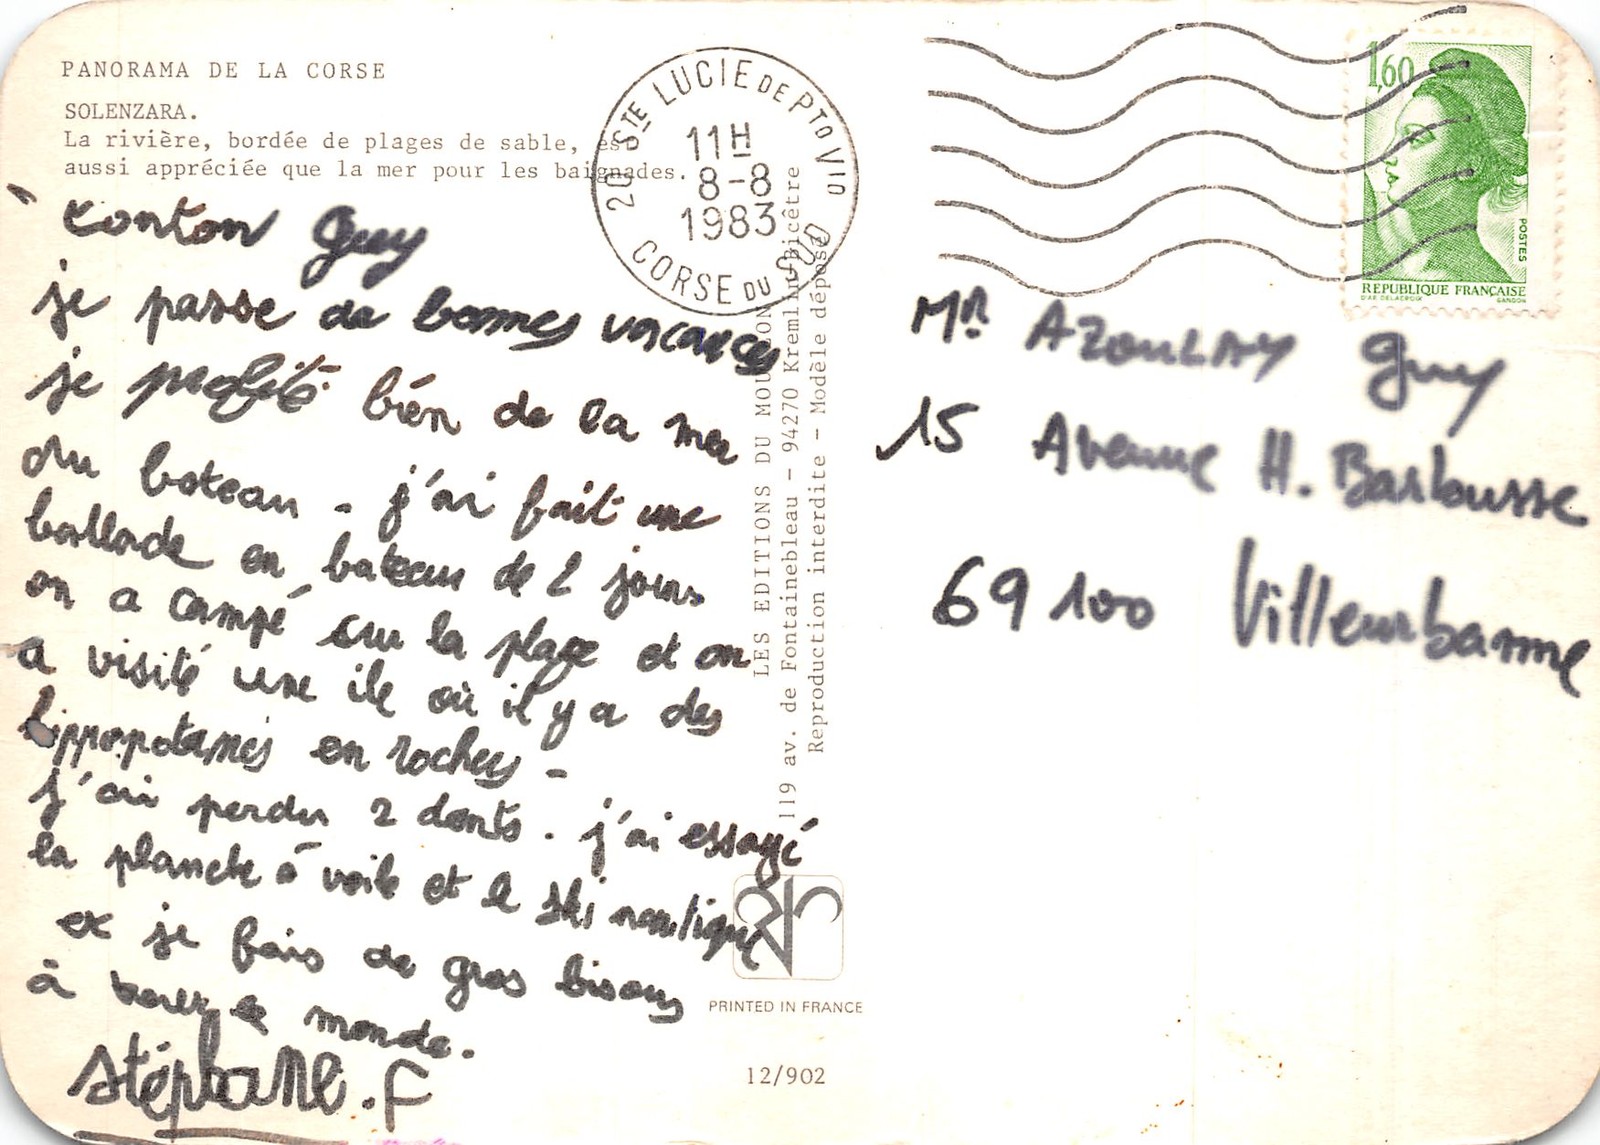 PANORAMA DE LA CORSE
SOLENZARA.
La rivière, bordée de plages de sable, est
aussi appréciée que la mer pour les baignades.
tonton Guy
je passe de bonnes vacances
je profité bien de la mer
du bateau - j'ai fait une
ballade en bateau de 2 jours
on a campé sur la plage et on
a visité une ile où il y a des
hippopotames en rochers -
j'ai perdu 2 dents. j'ai essayé
la planche à voile et le ski nautique
et je fais de gros bisous
à tout le monde.
Stéphane.F
20 STE LUCIE DE PTO VIO
11H
8-8
1983
CORSE DU SUD
LES EDITIONS DU MOUFLON
119 av. de Fontainebleau - 94270 Kremlin-Bicêtre
Reproduction interdite - Modèle déposé
PRINTED IN FRANCE
12/902
1,60
POSTES
REPUBLIQUE FRANÇAISE
D'AP. DELACROIX
GANDON
Mr AZOULAY Guy
15 Avenue H. Barbusse
69100 Villeurbanne